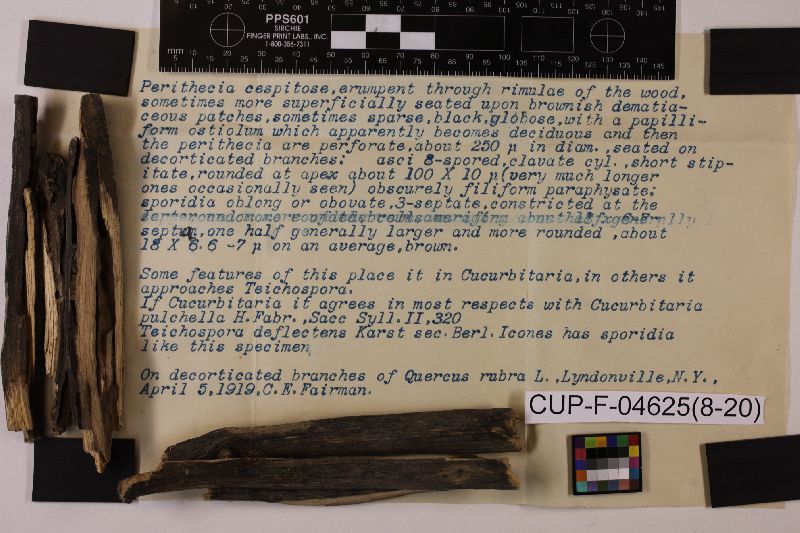 PPS601
SIRCHIE
FINGER PRINT LABS., INC.
1-800-356-7311
mm
Perithecia cespitose,erumpent through rimulae of the wood,
sometimes more superficially seated upon brownish dematia-
ceous patches,sometimes sparse,black,globose,with a papilli-
form ostiolum which apparently becomes deciduous and then
the perithecia are perforate,about 250 µ in diam.,seated on
decorticated branches; asci 8-spored,clavate cyl.,short stip-
itate,rounded at apex about 100 X 10 µ(very much longer
ones occasionally seen) obscurely filiform paraphysate;
sporidia oblong or obovate,3-septate,constricted at the
septum,one half generally larger and more rounded ,about
18 X 6.6 -7 µ on an average,brown.
Some features of this place it in Cucurbitaria,in others it
approaches Teichospora.
If Cucurbitaria it agrees in most respects with Cucurbitaria
pulchella H.Fabr.,Sacc Syll.II,320
Teichospora deflectens Karst sec.Berl.Icones has sporidia
like this specimen
On decorticated branches of Quercus rubra L.,Lyndonville,N.Y.,
April 5,1919,C.E.Fairman.
CUP-F-04625(8-20)